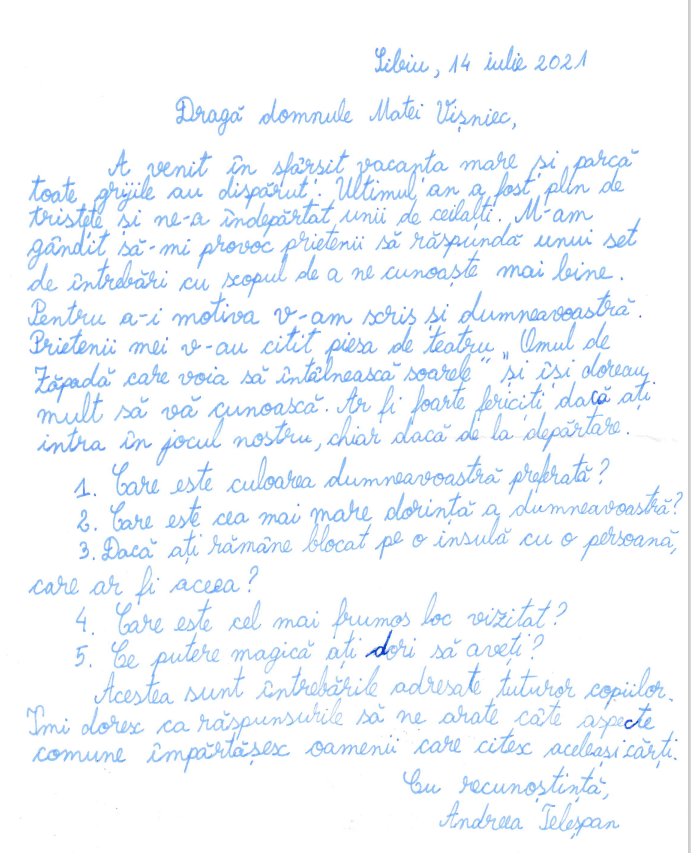 Sibiu, 14 iulie 2021
Dragă domnule Matei Vișniec,
A venit în sfârșit vacanta mare și parcă
toate grijile au dispărut. Ultimul an a fost plin de
tristețe și ne-a îndepărtat unii de ceilalți. M-am
gândit să-mi provoc prietenii să răspundă unui set
de întrebări cu scopul de a ne cunoaște mai bine.
Pentru a-i motiva v-am scris și dumneavoastră.
Prietenii mei v-au citit piesa de teatru „Omul de
Zăpadă care voia să întâlnească soarele" și își doreau
mult să vă cunoască. Ar fi foarte fericiți dacă ați
intra în jocul nostru, chiar dacă de la depărtare.
1. Care este culoarea dumneavoastră preferată?
2. Care este cea mai mare dorință a dumneavoastră?
3. Dacă ați rămâne blocat pe o insulă cu o persoană,
care ar fi aceea?
4. Care este cel mai frumos loc vizitat?
5. Ce putere magică ați dori să aveți?
Acestea sunt întrebările adresate tuturor copiilor.
Îmi doresc ca răspunsurile să ne arate câte aspecte
comune împărtășesc oamenii care citesc aceleași cărți.
Cu recunoștință,
Andreea Teleșpan